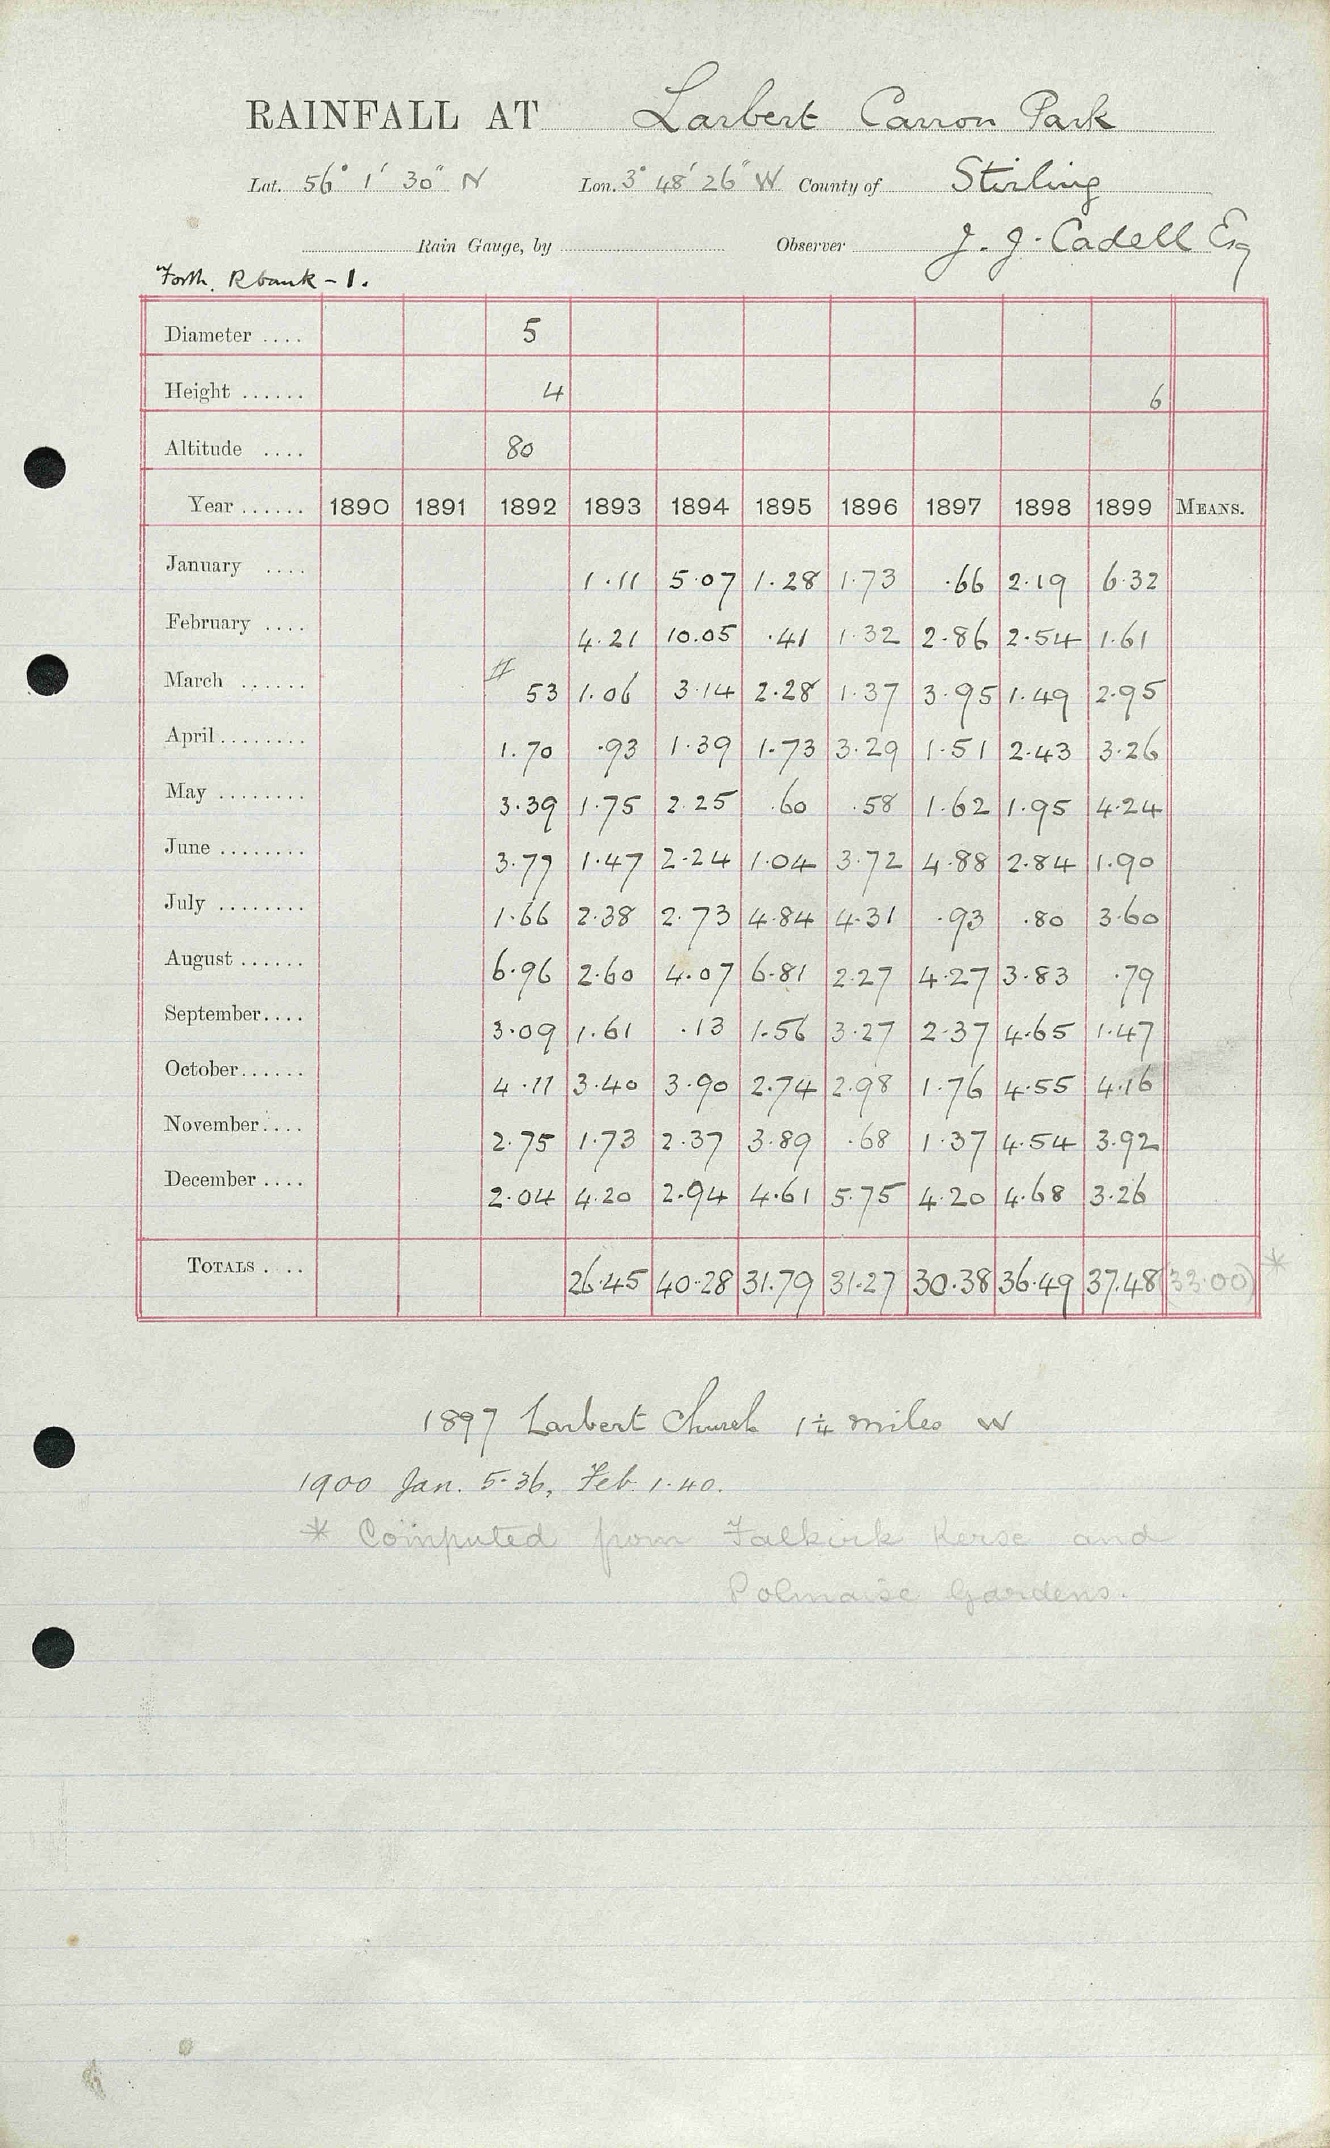 RAINFALL AT Larbert Carron Park
Lat. 56° 1' 30" N Lon. 3° 48' 26" W County of Stirling
Rain Gauge, by Observer J. J. Cadell Esq
Forth. R bank - 1.
Diameter .... 5
Height ...... 4 6
Altitude .... 80
Year ...... 1890 1891 1892 1893 1894 1895 1896 1897 1898 1899 MEANS.
January .... 1.11 5.07 1.28 1.73 .66 2.19 6.32
February .... 4.21 10.05 .41 1.32 2.86 2.54 1.61
March ...... # 53 1.06 3.14 2.28 1.37 3.95 1.49 2.95
April........ 1.70 .93 1.39 1.73 3.29 1.51 2.43 3.26
May ........ 3.39 1.75 2.25 .60 .58 1.62 1.95 4.24
June ........ 3.77 1.47 2.24 1.04 3.72 4.88 2.84 1.90
July ........ 1.66 2.38 2.73 4.84 4.31 .93 .80 3.60
August ...... 6.96 2.60 4.07 6.81 2.27 4.27 3.83 .79
September.... 3.09 1.61 .13 1.56 3.27 2.37 4.65 1.47
October...... 4.11 3.40 3.90 2.74 2.98 1.76 4.55 4.16
November.... 2.75 1.73 2.37 3.89 .68 1.37 4.54 3.92
December .... 2.04 4.20 2.94 4.61 5.75 4.20 4.68 3.26
TOTALS .... 26.45 40.28 31.79 31.27 30.38 36.49 37.48 (33.00) *
1897 Larbert Church 1¼ miles W
1900 Jan. 5.36, Feb. 1.40.
* Computed from Falkirk Kerse and
Polmaise Gardens.